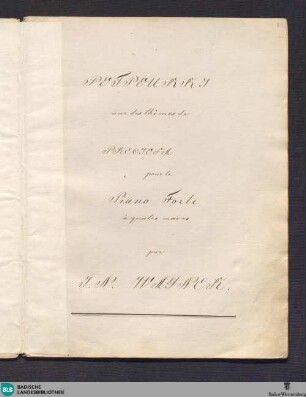 POTPOURRI
sur des thêmes de
PRECIOSA
pour le
Piano Forte
à quatre mains
par
J. N. WAGNER.
BLB
BADISCHE
LANDESBIBLIOTHEK
Baden-Württemberg